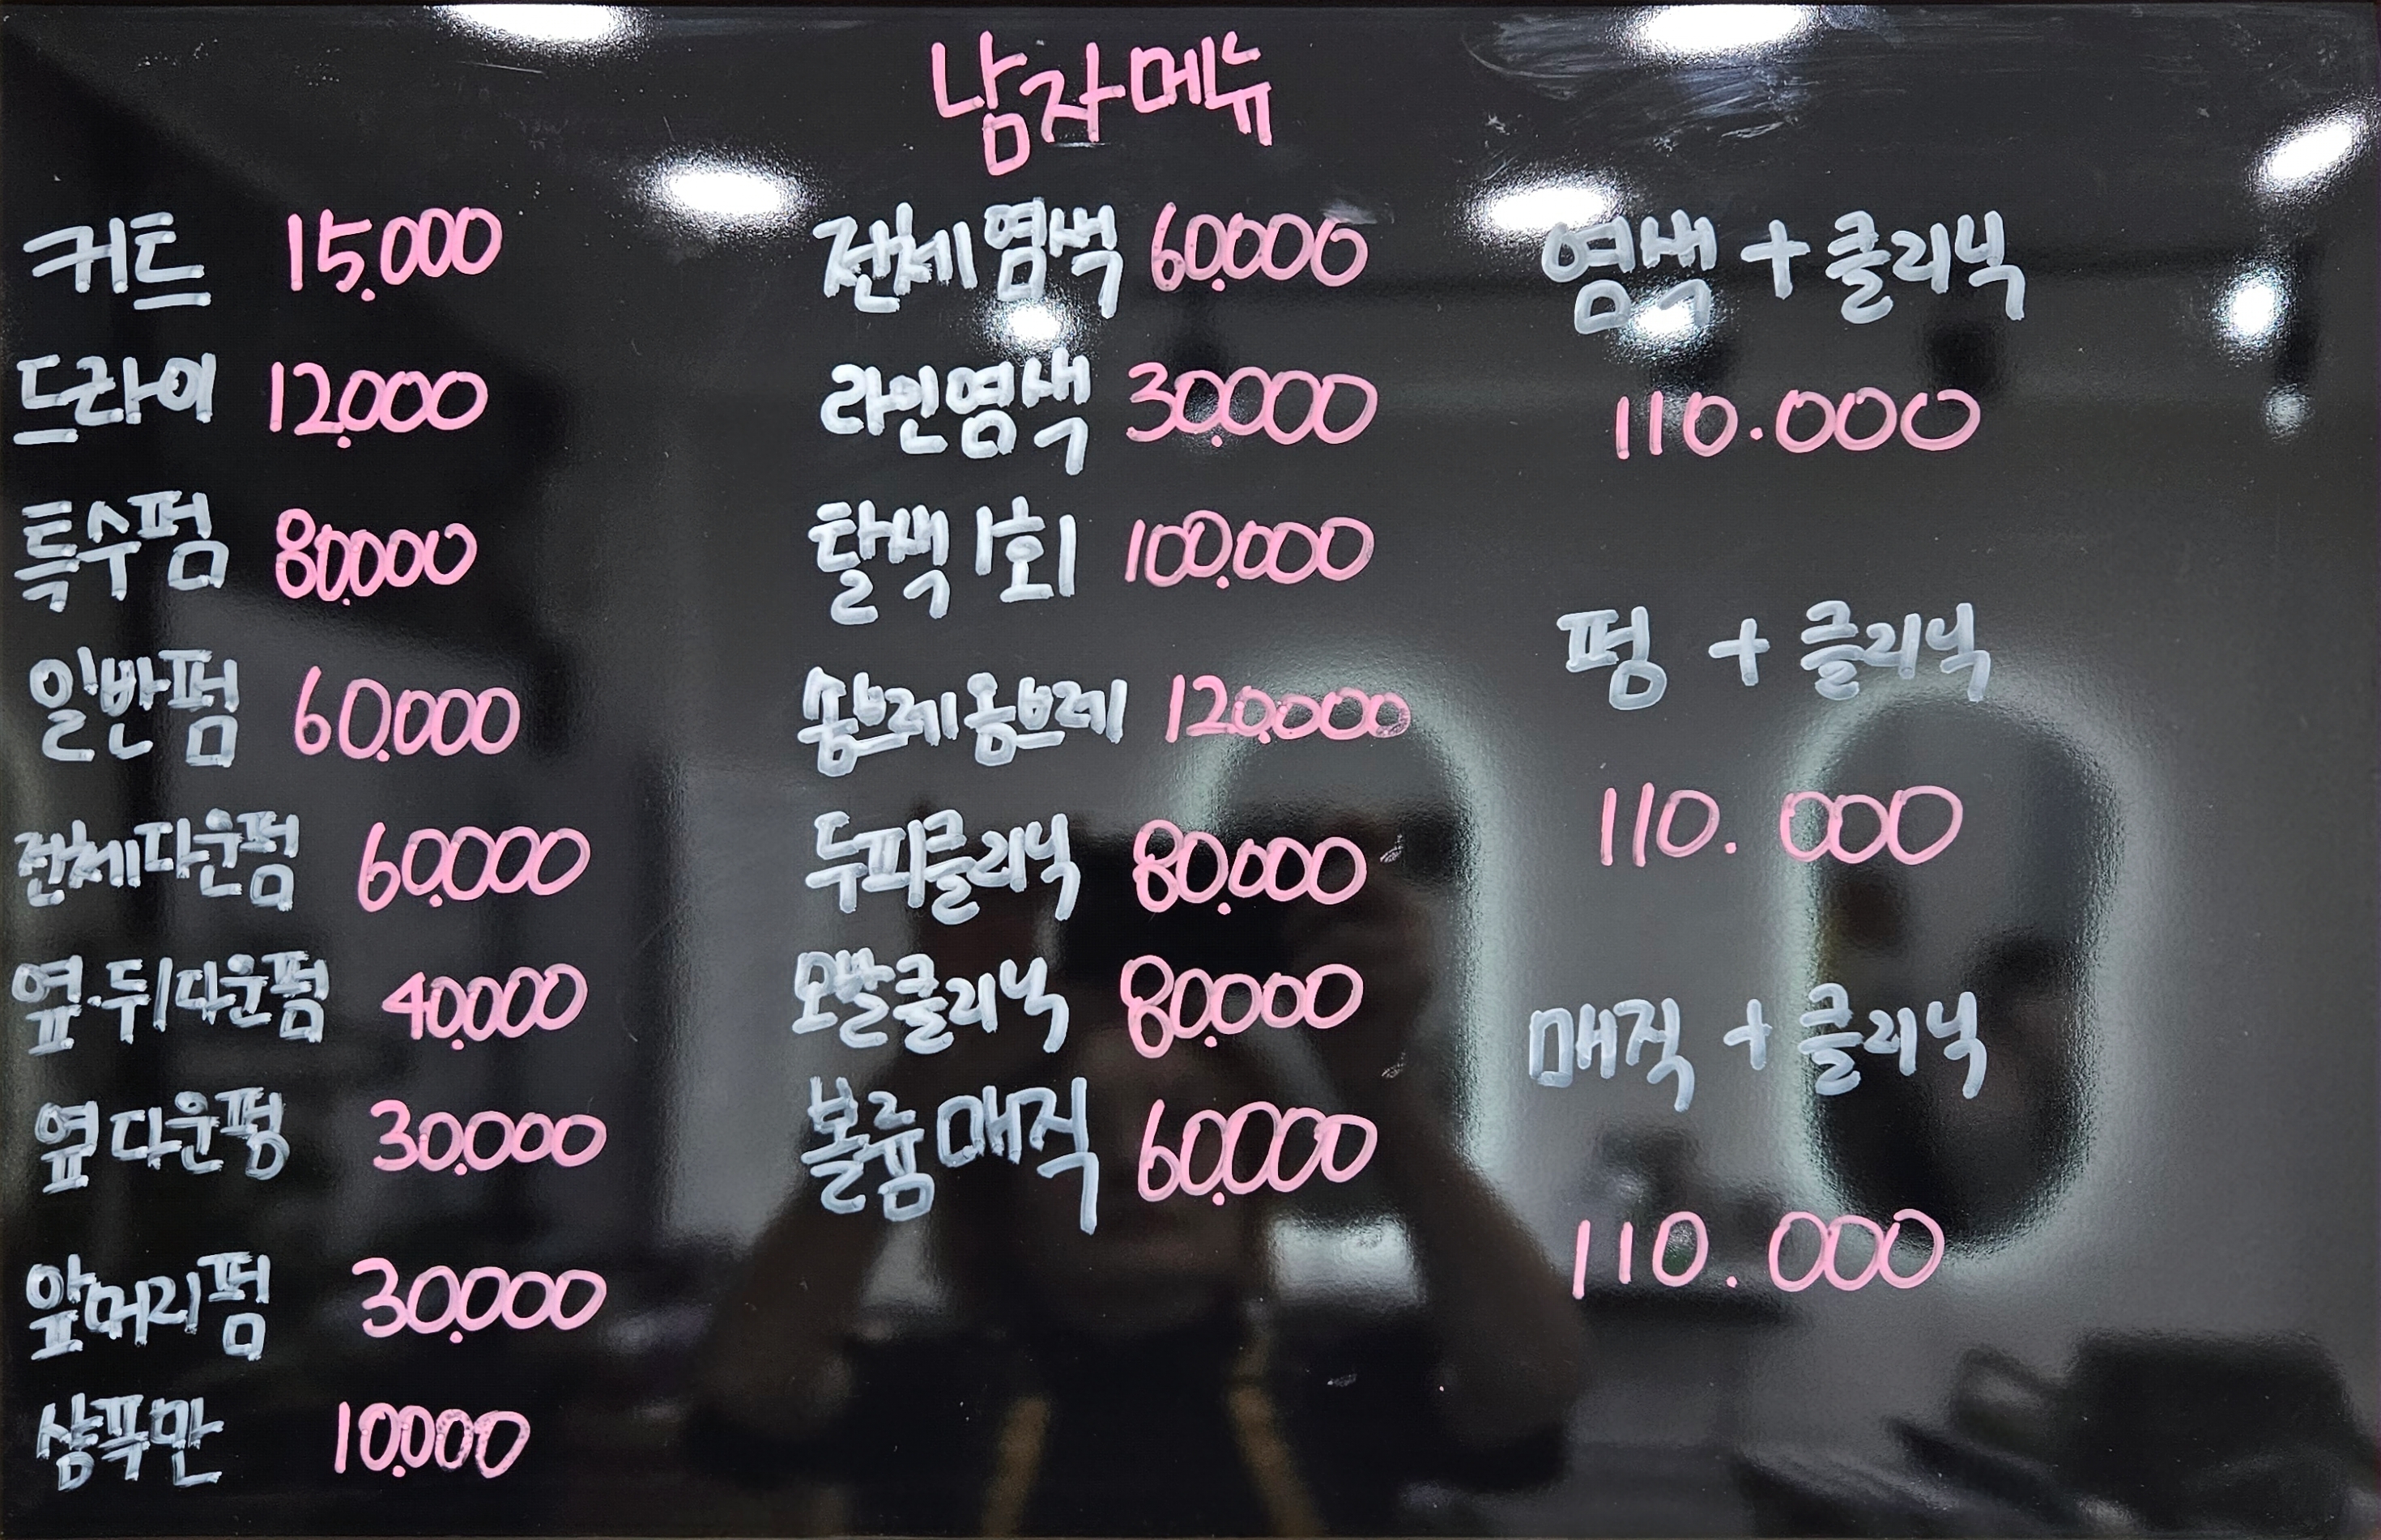 남자메뉴
커트 15.000
드라이 12.000
특수펌 80.000
일반펌 60.000
전체다운펌 60.000
옆.뒤다운펌 40.000
옆다운펑 30.000
앞머리펌 30.000
샴푸만 10.000
전체염색 60.000
라인염색 30.000
탈색1회 100.000
솜브레옴브레 120.000
두피클리닉 80.000
모발클리닉 80.000
볼륨매직 60.000
염색+클리닉
110.000
펑 + 클리닉
110.000
매직 + 클리닉
110.000